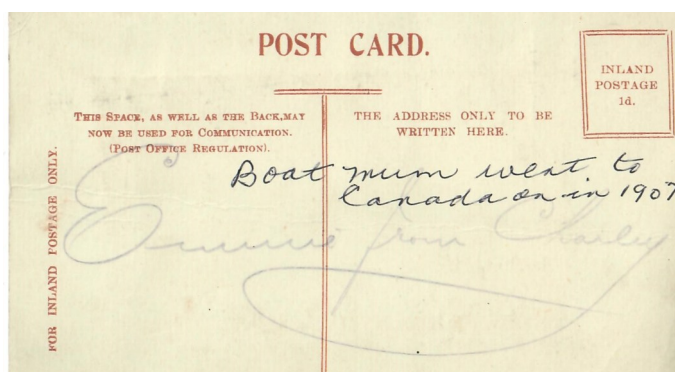 POST CARD.
INLAND
POSTAGE
1d.
THIS SPACE, AS WELL AS THE BACK, MAY
NOW BE USED FOR COMMUNICATION.
(POST OFFICE REGULATION).
THE ADDRESS ONLY TO BE
WRITTEN HERE.
FOR INLAND POSTAGE ONLY.
Boat mum went to
Canada on in 1907
Emmie from Charley